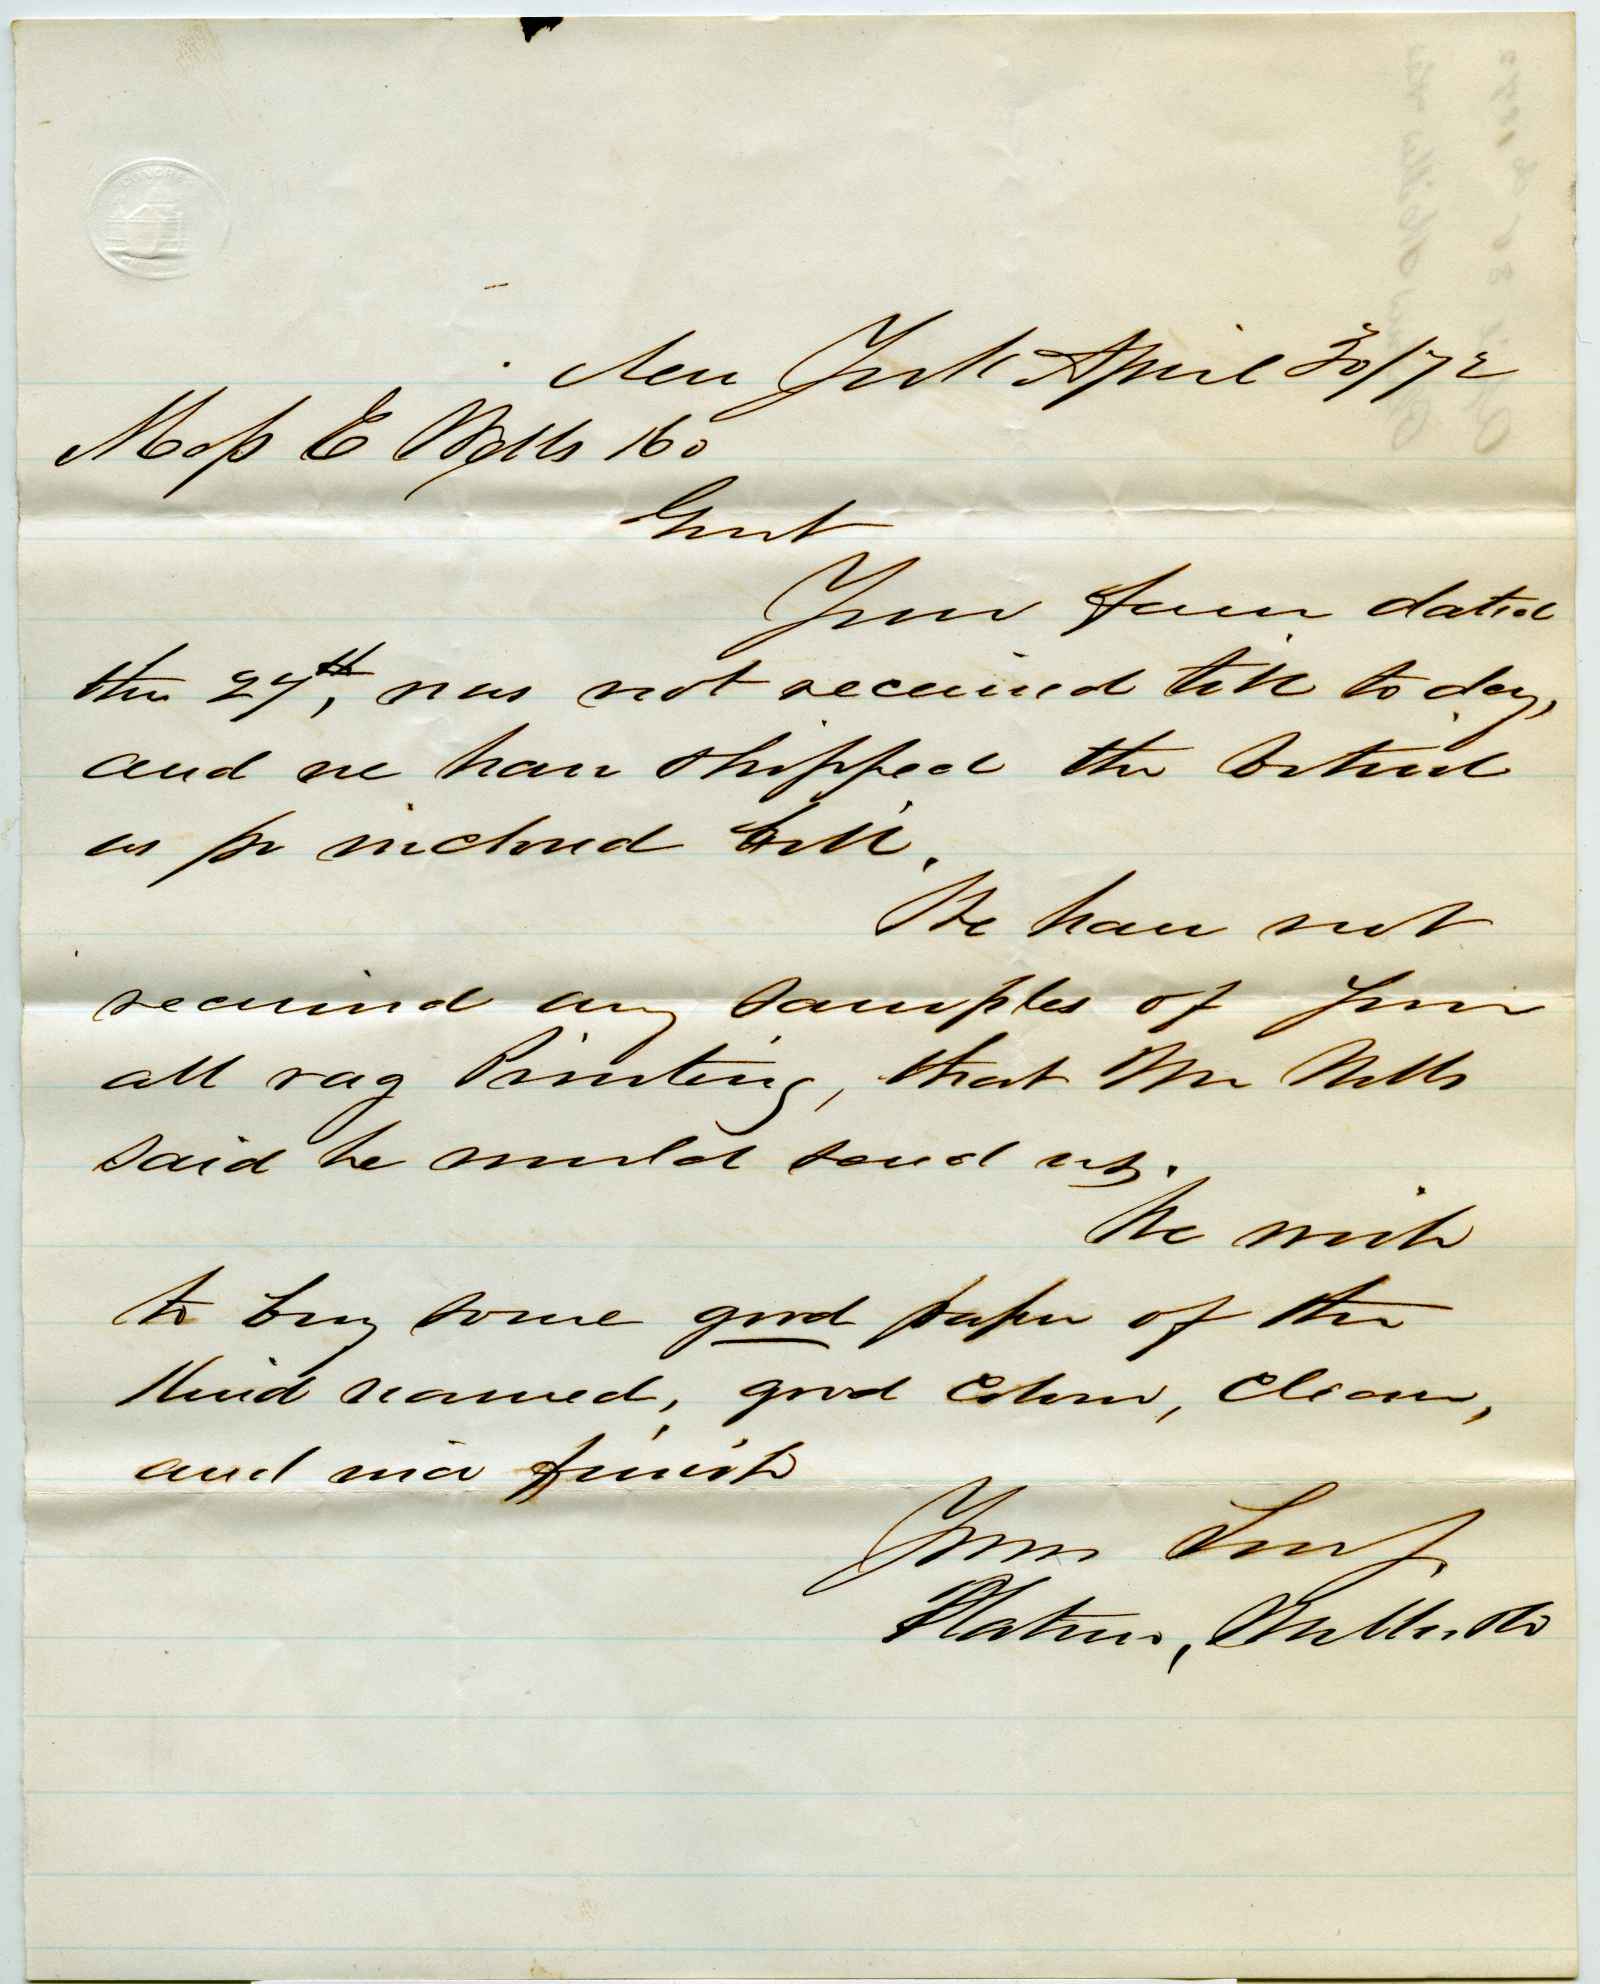 New York April 30/72
Mess E Wells & Co
Gent
Your favor dated
the 27th, was not received till to day,
and we have shipped the
as pr inclosed bill.
We have not
received any samples of your
all rag Printing, that Mr Wells
said he would send us.
We wish
to buy some good paper of the
Kind named, good color, clean,
and nice finish
Yours Truly,
Platner, & Co